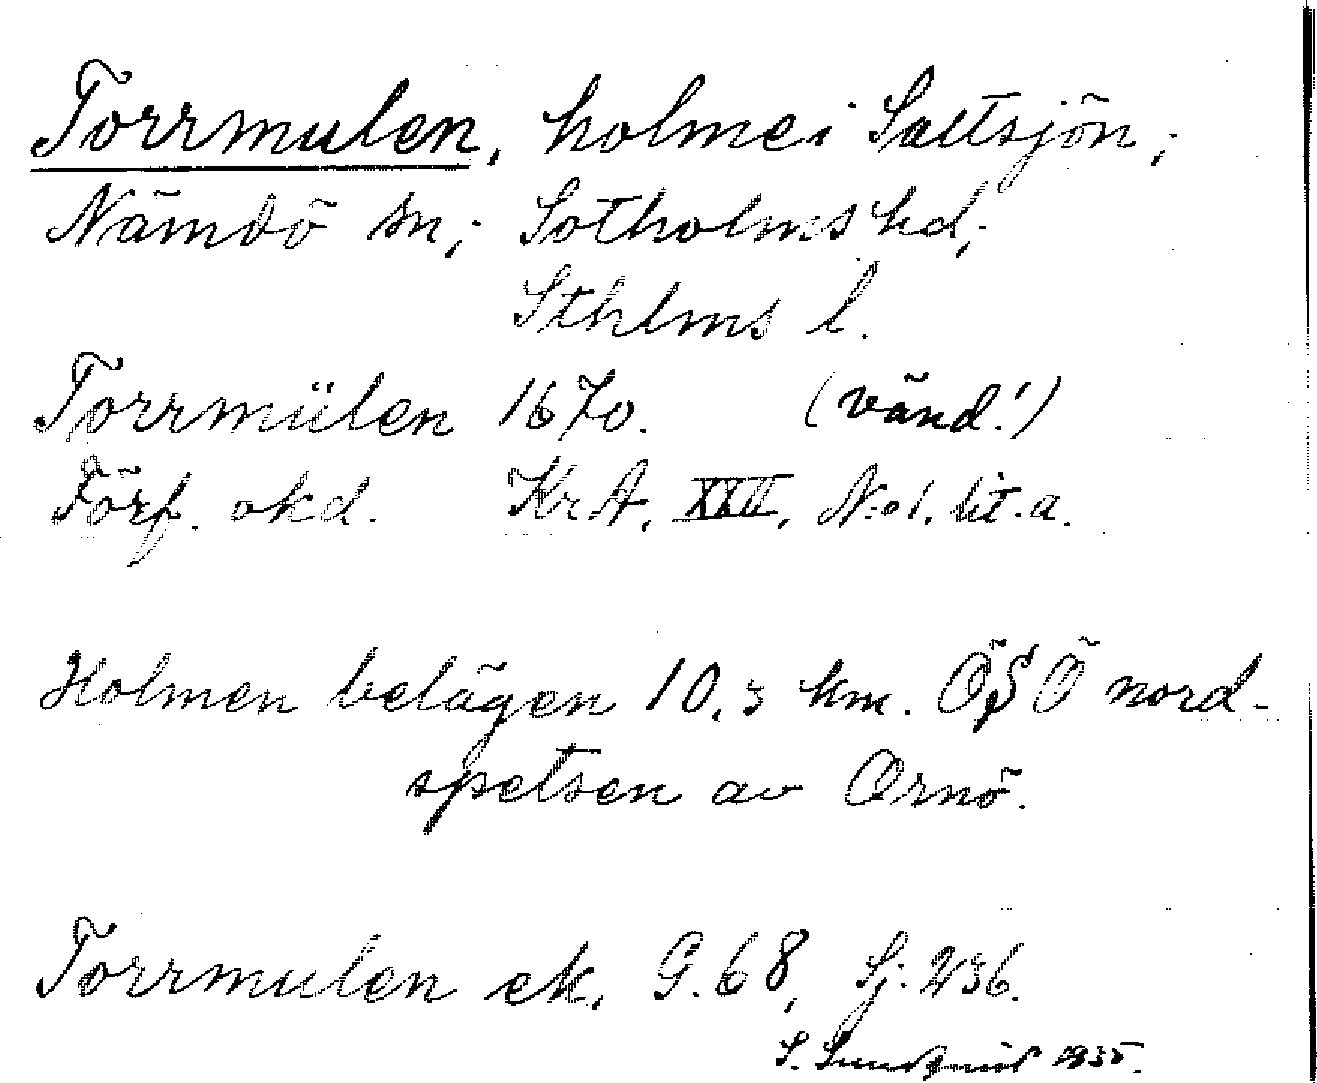 Torrmulen, holme i Saltsjön;
Nämdö sn; Sotholms hd;
Sthlms l.
Torrmülen 1670. (vänd!)
Förf. okd. KrA, XXII, N:o 1. lit. a.
Holmen belägen 10,3 km. ÖSÖ nord-
spetsen av Ornö.
Torrmulen ek, G. 68, Sj. 236.
S. Sundqvist 1935.